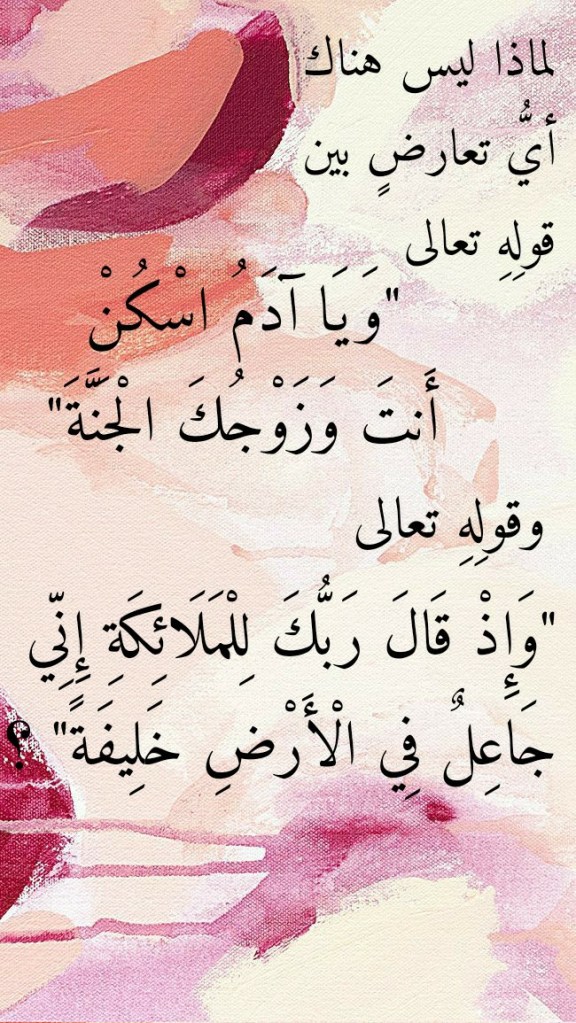 لماذا ليس هناك
أيُّ تعارضٍ بين
قولِهِ تعالى
"وَيَا آدَمُ اسْكُنْ
أَنتَ وَزَوْجُكَ الْجَنَّةَ"
وقولِهِ تعالى
"وَإِذْ قَالَ رَبُّكَ لِلْمَلَائِكَةِ إِنِّي
جَاعِلٌ فِي الْأَرْضِ خَلِيفَةً" ؟